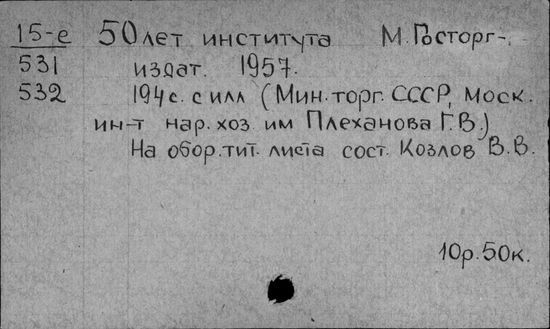 15-е 50 лет института М. Госторг-
531 издат. 1957.
532 194 с. с илл (Мин. торг. СССР, Моск.
ин-т нар. хоз им Плеханова Г.В.)
На обор. тит. листа сост. Козлов В.В.
10р. 50к.